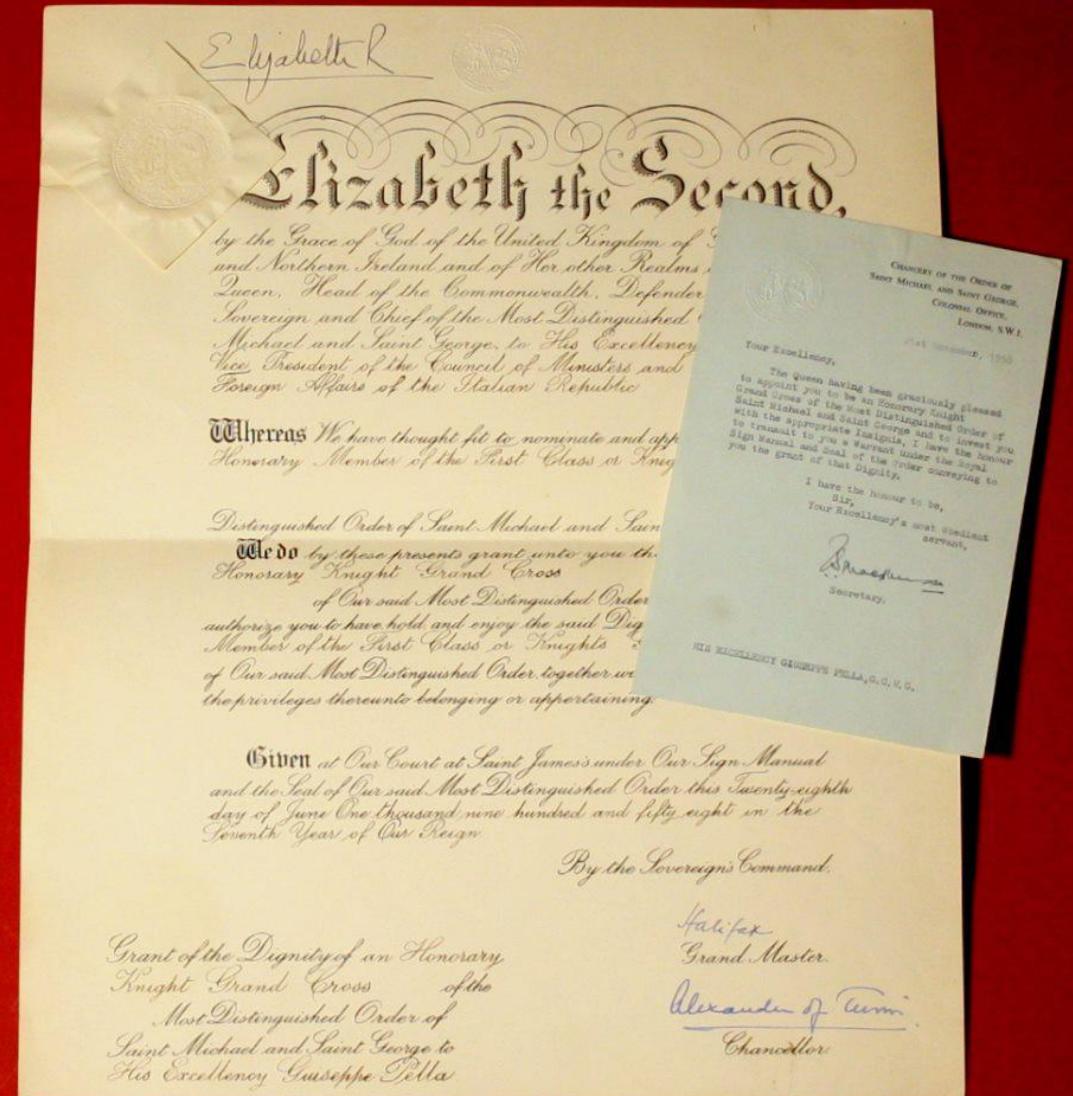 Elizabeth R
Elizabeth the Second,
by the Grace of God of the United Kingdom of
and Northern Ireland and of Her other Realms
Queen, Head of the Commonwealth, Defender
Sovereign and Chief of the Most Distinguished
Michael and Saint George, to His Excellency
Vice President of the Council of Ministers and
Foreign Affairs of the Italian Republic
Whereas We have thought fit to nominate and app
Honorary Member of the First Class or Knig
Distinguished Order of Saint Michael and Sain
We do by these presents grant unto you th
Honorary Knight Grand Cross
of Our said Most Distinguished Order
authorize you to have hold and enjoy the said Dig
Member of the First Class or Knights
of Our said Most Distinguished Order, together wi
the privileges thereunto belonging or appertaining.
Given at Our Court at Saint James's under Our Sign Manual
and the Seal of Our said Most Distinguished Order this Twenty-eighth
day of June One thousand nine hundred and fifty eight in the
Seventh Year of Our Reign
By the Sovereign's Command.
Halifax
Grand Master.
Alexander of Tunis.
Chancellor
Grant of the Dignity of an Honorary
Knight Grand Cross of the
Most Distinguished Order of
Saint Michael and Saint George to
His Excellency Giuseppe Pella
Chancery of the Order of
Saint Michael and Saint George,
Colonial Office,
London, S.W.1.
1958
Your Excellency,
The Queen having been graciously pleased
to appoint you to be an Honorary Knight
Grand Cross of the Most Distinguished Order of
Saint Michael and Saint George and to invest you
with the appropriate Insignia, I have the honour
to transmit to you a Warrant under the Royal
Sign Manual and Seal of the Order conveying to
you the grant of that Dignity.
I have the honour to be,
Sir,
Your Excellency's most obedient
servant,
Secretary.
HIS EXCELLENCY GIUSEPPE PELLA, G.C.M.G.